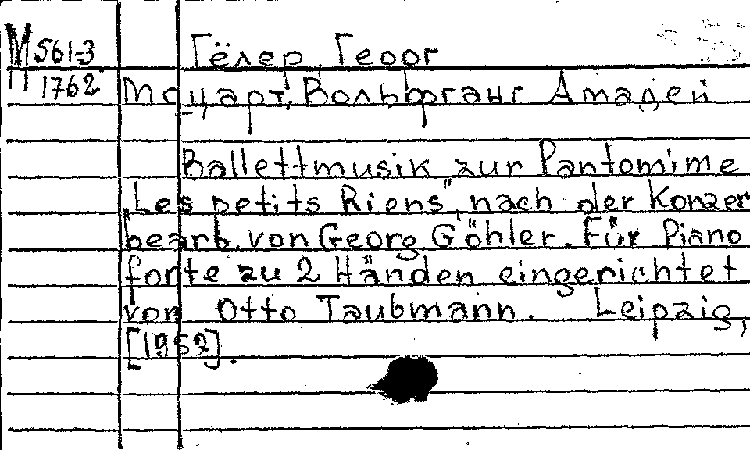 М 561-3 Гёлер, Георг
1762 Моцарт, Вольфганг Амадей
Ballettmusik zur Pantomime
„Les petits Riens", nach der Konzer
bearb. von Georg Göhler. Für Piano
forte zu 2 Händen eingerichtet
von Otto Taubmann. Leipzig,
[1952].